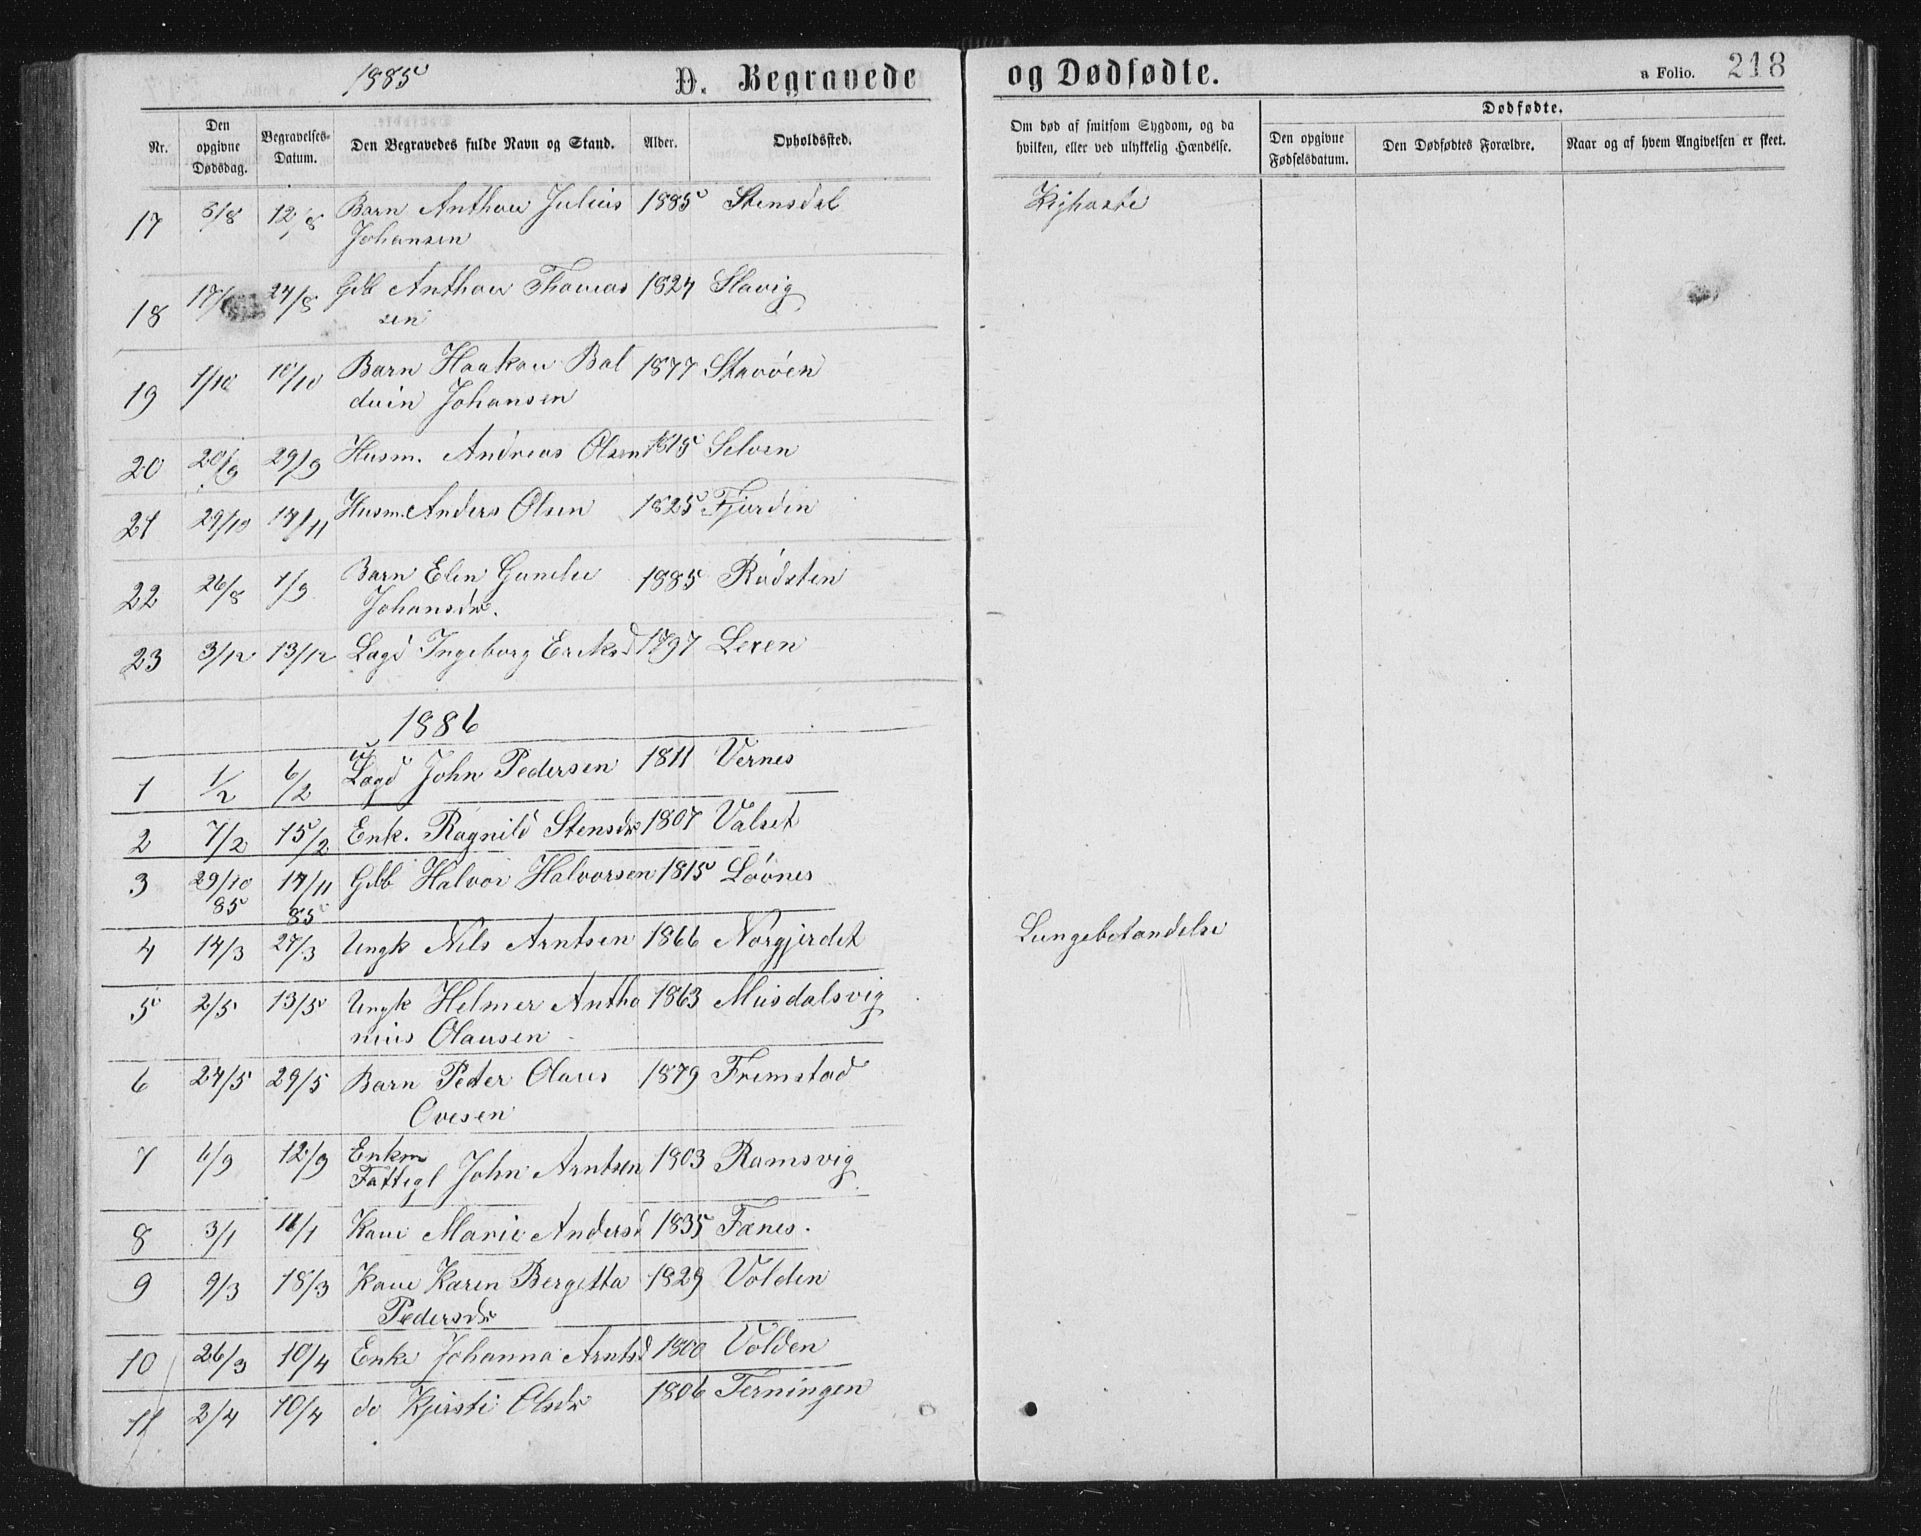 1885 D. Begravede og Dødfødte. a Folio. 218
Nr. Den opgivne Dødsdag. Begravelses-Datum. Den Begravedes fulde Navn og Stand. Alder. Opholdssted. Om død af smitsom Sygdom, og da hvilken, eller ved ulykkelig Hændelse. Dødfødte. Den opgivne Fødselsdatum. Den Dødfødtes Forældre. Naar og af hvem Angivelsen er skeet.
17 6/8 12/8 Barn Anthon Julius 1885 Stensdal Kighoste
Johansen
18 17/ 24/8 Gdb Anthon Thomas 1824 Slavig
sen
19 1/10 10/10 Barn Haakon Bal 1877 Stavøen
duin Johansen
20 20/9 29/9 Husm. Andreas Olsen 1815 Selven
21 29/10 14/11 Husm. Anders Olsen 1825 Fjorden
22 26/8 1/9 Barn Elen Gunelie 1885 Rødsten
Johansdr.
23 3/12 13/12 Lagd Ingeborg Eriksd 1797 Lexen
1886
1 1/2 6/2 Lagd John Pedersen 1811 Vernes
2 7/2 15/2 Enk. Ragnild Stensdr 1807 Valset
3 29/10 85 14/11 85 Gdb Halvor Halvorsen 1815 Løvnes
4 14/3 27/3 Ungk Nils Arntsen 1866 Norgjerdet Lungebetændelse
5 2/5 13/5 Ungk Helmer Antho 1863 Misdalsvig
nius Olausen
6 24/5 29/5 Barn Peter Olaus 1879 Fremstad
Ovesen
7 6/9 12/9 Enkm Fattigl John Arntsen 1803 Ramsvig
8 3/1 11/1 Kone Marie Andersd 1835 Fænes.
9 9/3 18/3 Kone Karen Bergitta 1829 Volden
Pedersdr
10 26/3 10/4 Enke Johanna Arntsd 1800 Volden
11 2/4 10/4 do Kjersti Olsdr 1806 Terningen